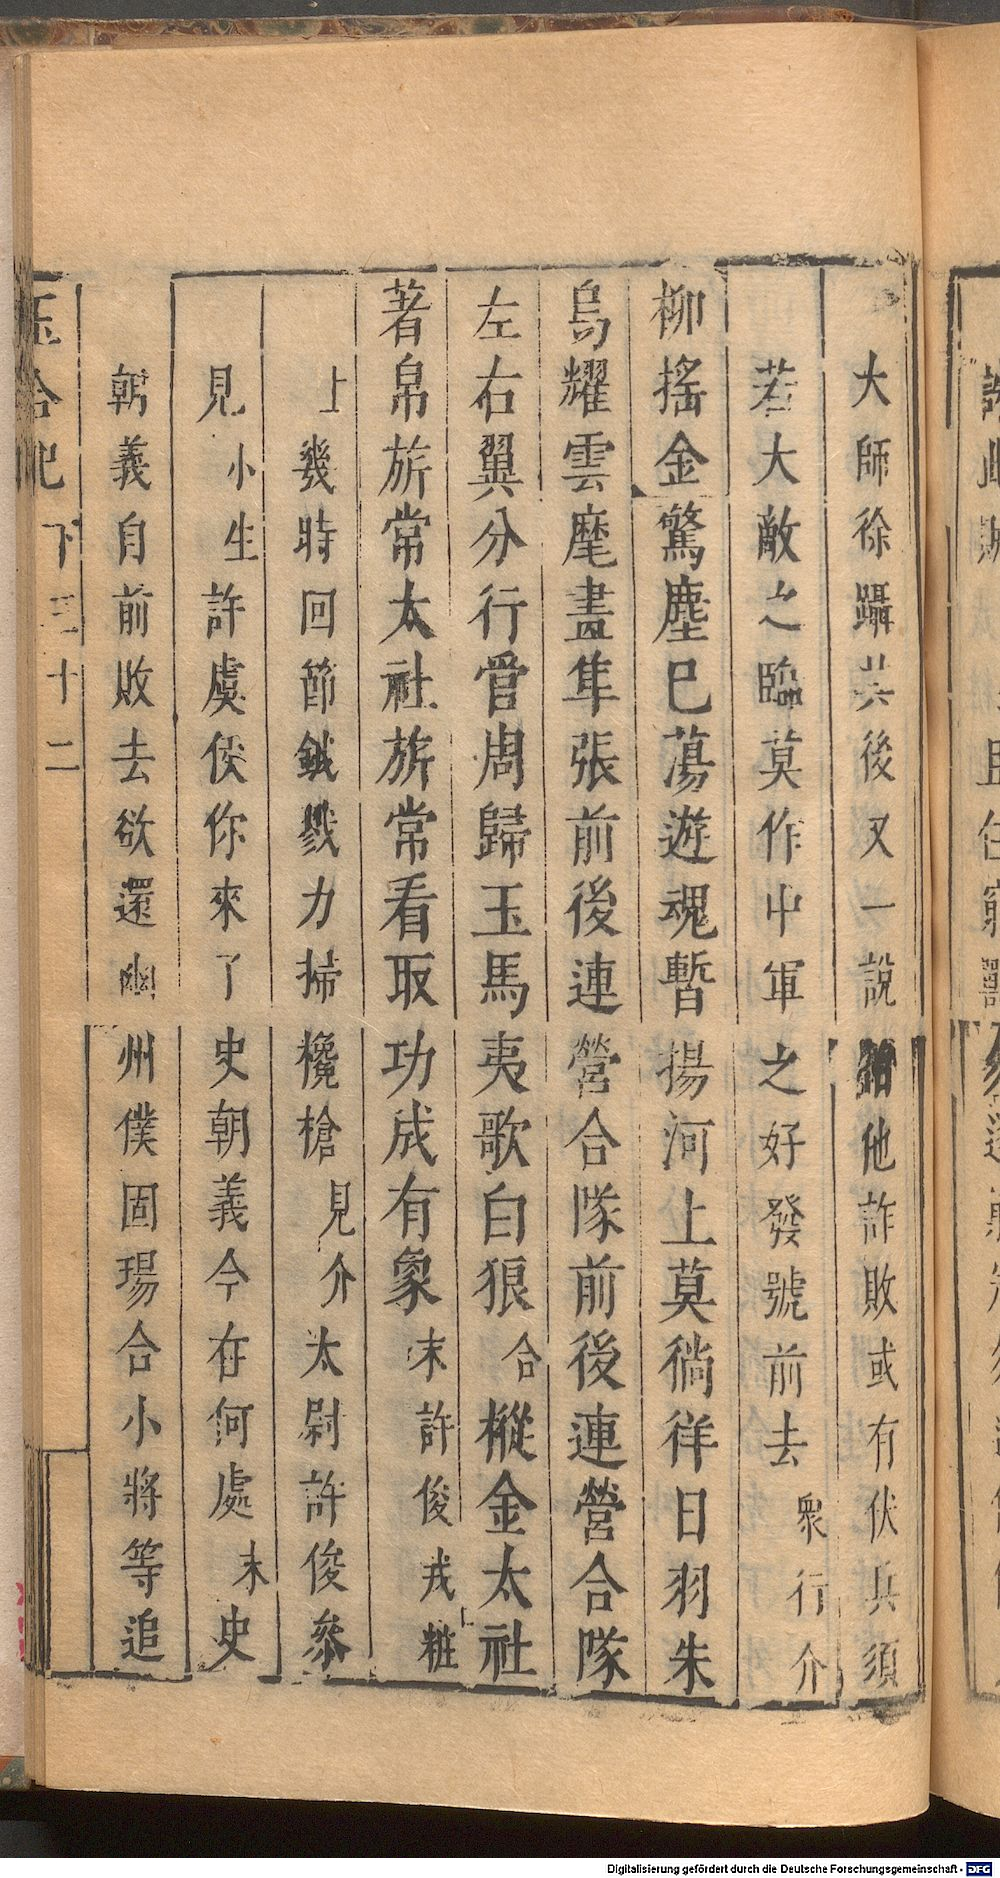 大師徐躡其後又一說餡他詐敗或有伏兵須
若大敵之臨莫作中軍之好發號前去衆行介
柳搖金驚塵已蕩遊魂暫揚河上莫徜徉日羽朱
鳥耀雲麾畫隼張前後連營合隊前後連營合隊
左右翼分行営周歸玉馬夷歌白狼合樅金太社
著帛旂常太社旂常看取功成有象末許俊戎粧
上幾時回節鉞戮力掃欃槍見介太尉許俊參
見小生許虞侯你來了史朝義今在何處末史
朝義自前敗去欲還幽州僕固瑒合小將等追
玉合記 下 三十二
Digitalisierung gefördert durch die Deutsche Forschungsgemeinschaft - DFG